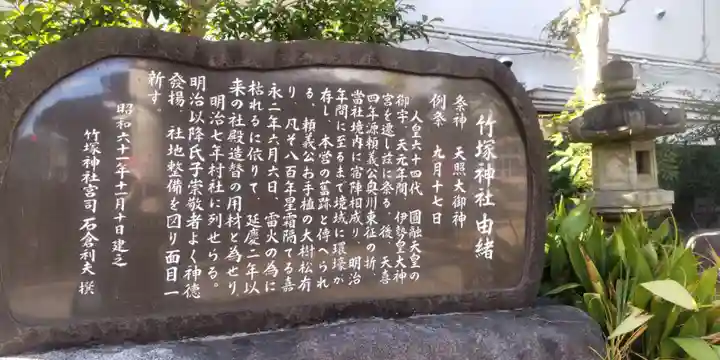 竹塚神社由緒
祭神　天照大御神
例祭　九月十七日
人皇六十四代　圓融天皇の
御宇、天元年間、伊勢皇大神
宮を遷し茲に祭る、後、天喜
四年源頼義公奥州東征の折、
當社境内に宿陣相成り、明治
年間に至るまで境域に環壕が
存し、本営の舊跡と傳へられ
る、頼義公お手植の大樹松有
り、凡そ八百年星霜隔てる嘉
永二年六月六日、雷火の為に
枯れるに依りて、延慶二年以
来の社殿造替の用材と為せり。
明治七年村社に列せらる。
明治以降氏子崇敬者よく神徳
發揚、社地整備を図り面目一
新す。
昭和六十一年十一月十日建之
竹塚神社宮司　石倉利夫　撰